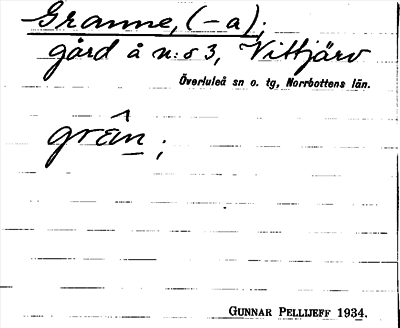 Granne, (-a);
gård å n:o 3, Vittjärv
Överluleå sn o. tg, Norrbottens län.
grân;
GUNNAR PELLIJEFF 1934.